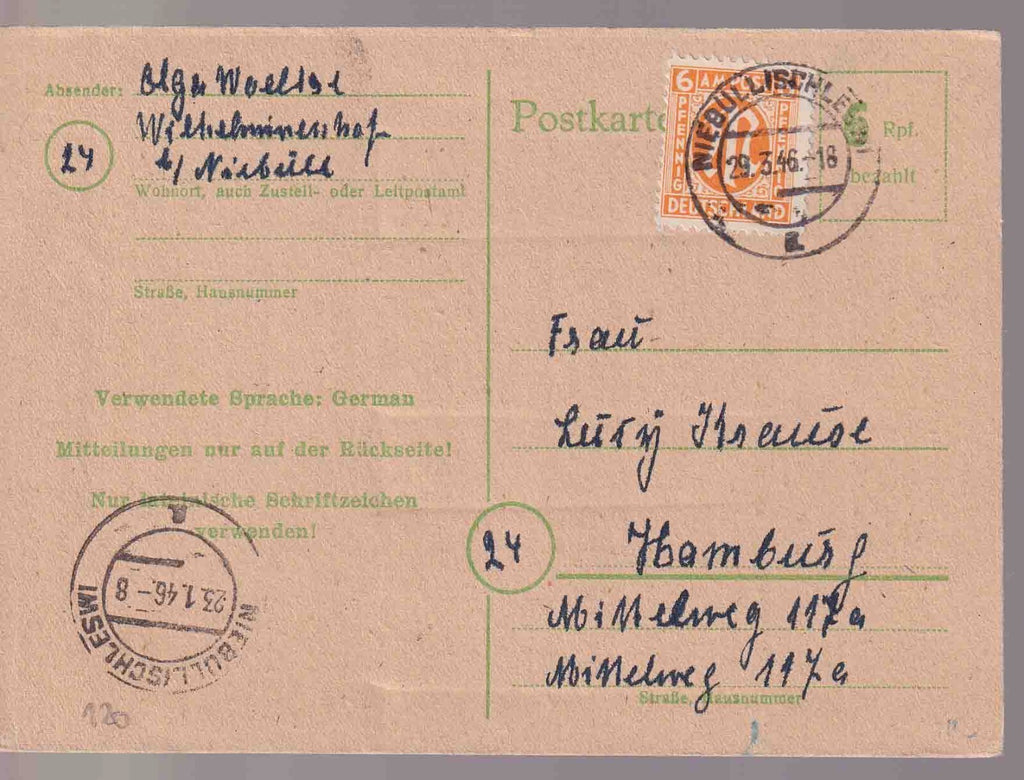 Absender: Olga
Wilhelminenhof
b/ Niebüll
24
Wohnort, auch Zustell- oder Leitpostamt
Straße, Hausnummer
Verwendete Sprache: German
Mitteilungen nur auf der Rückseite!
Nur lateinische Schriftzeichen
verwenden!
NIEBÜLL (SCHLESW)
23.1.46.-8
a
120
Postkarte
6 AM POST
PFENNIG PFENNIG
DEUTSCHLAND
NIEBÜLL (SCHLESW)
29.3.46.-18
a
Rpf.
bezahlt
Frau
Lucy Krause
24
Hamburg
Mittelweg 117a
Mittelweg 117a
Straße, Hausnummer